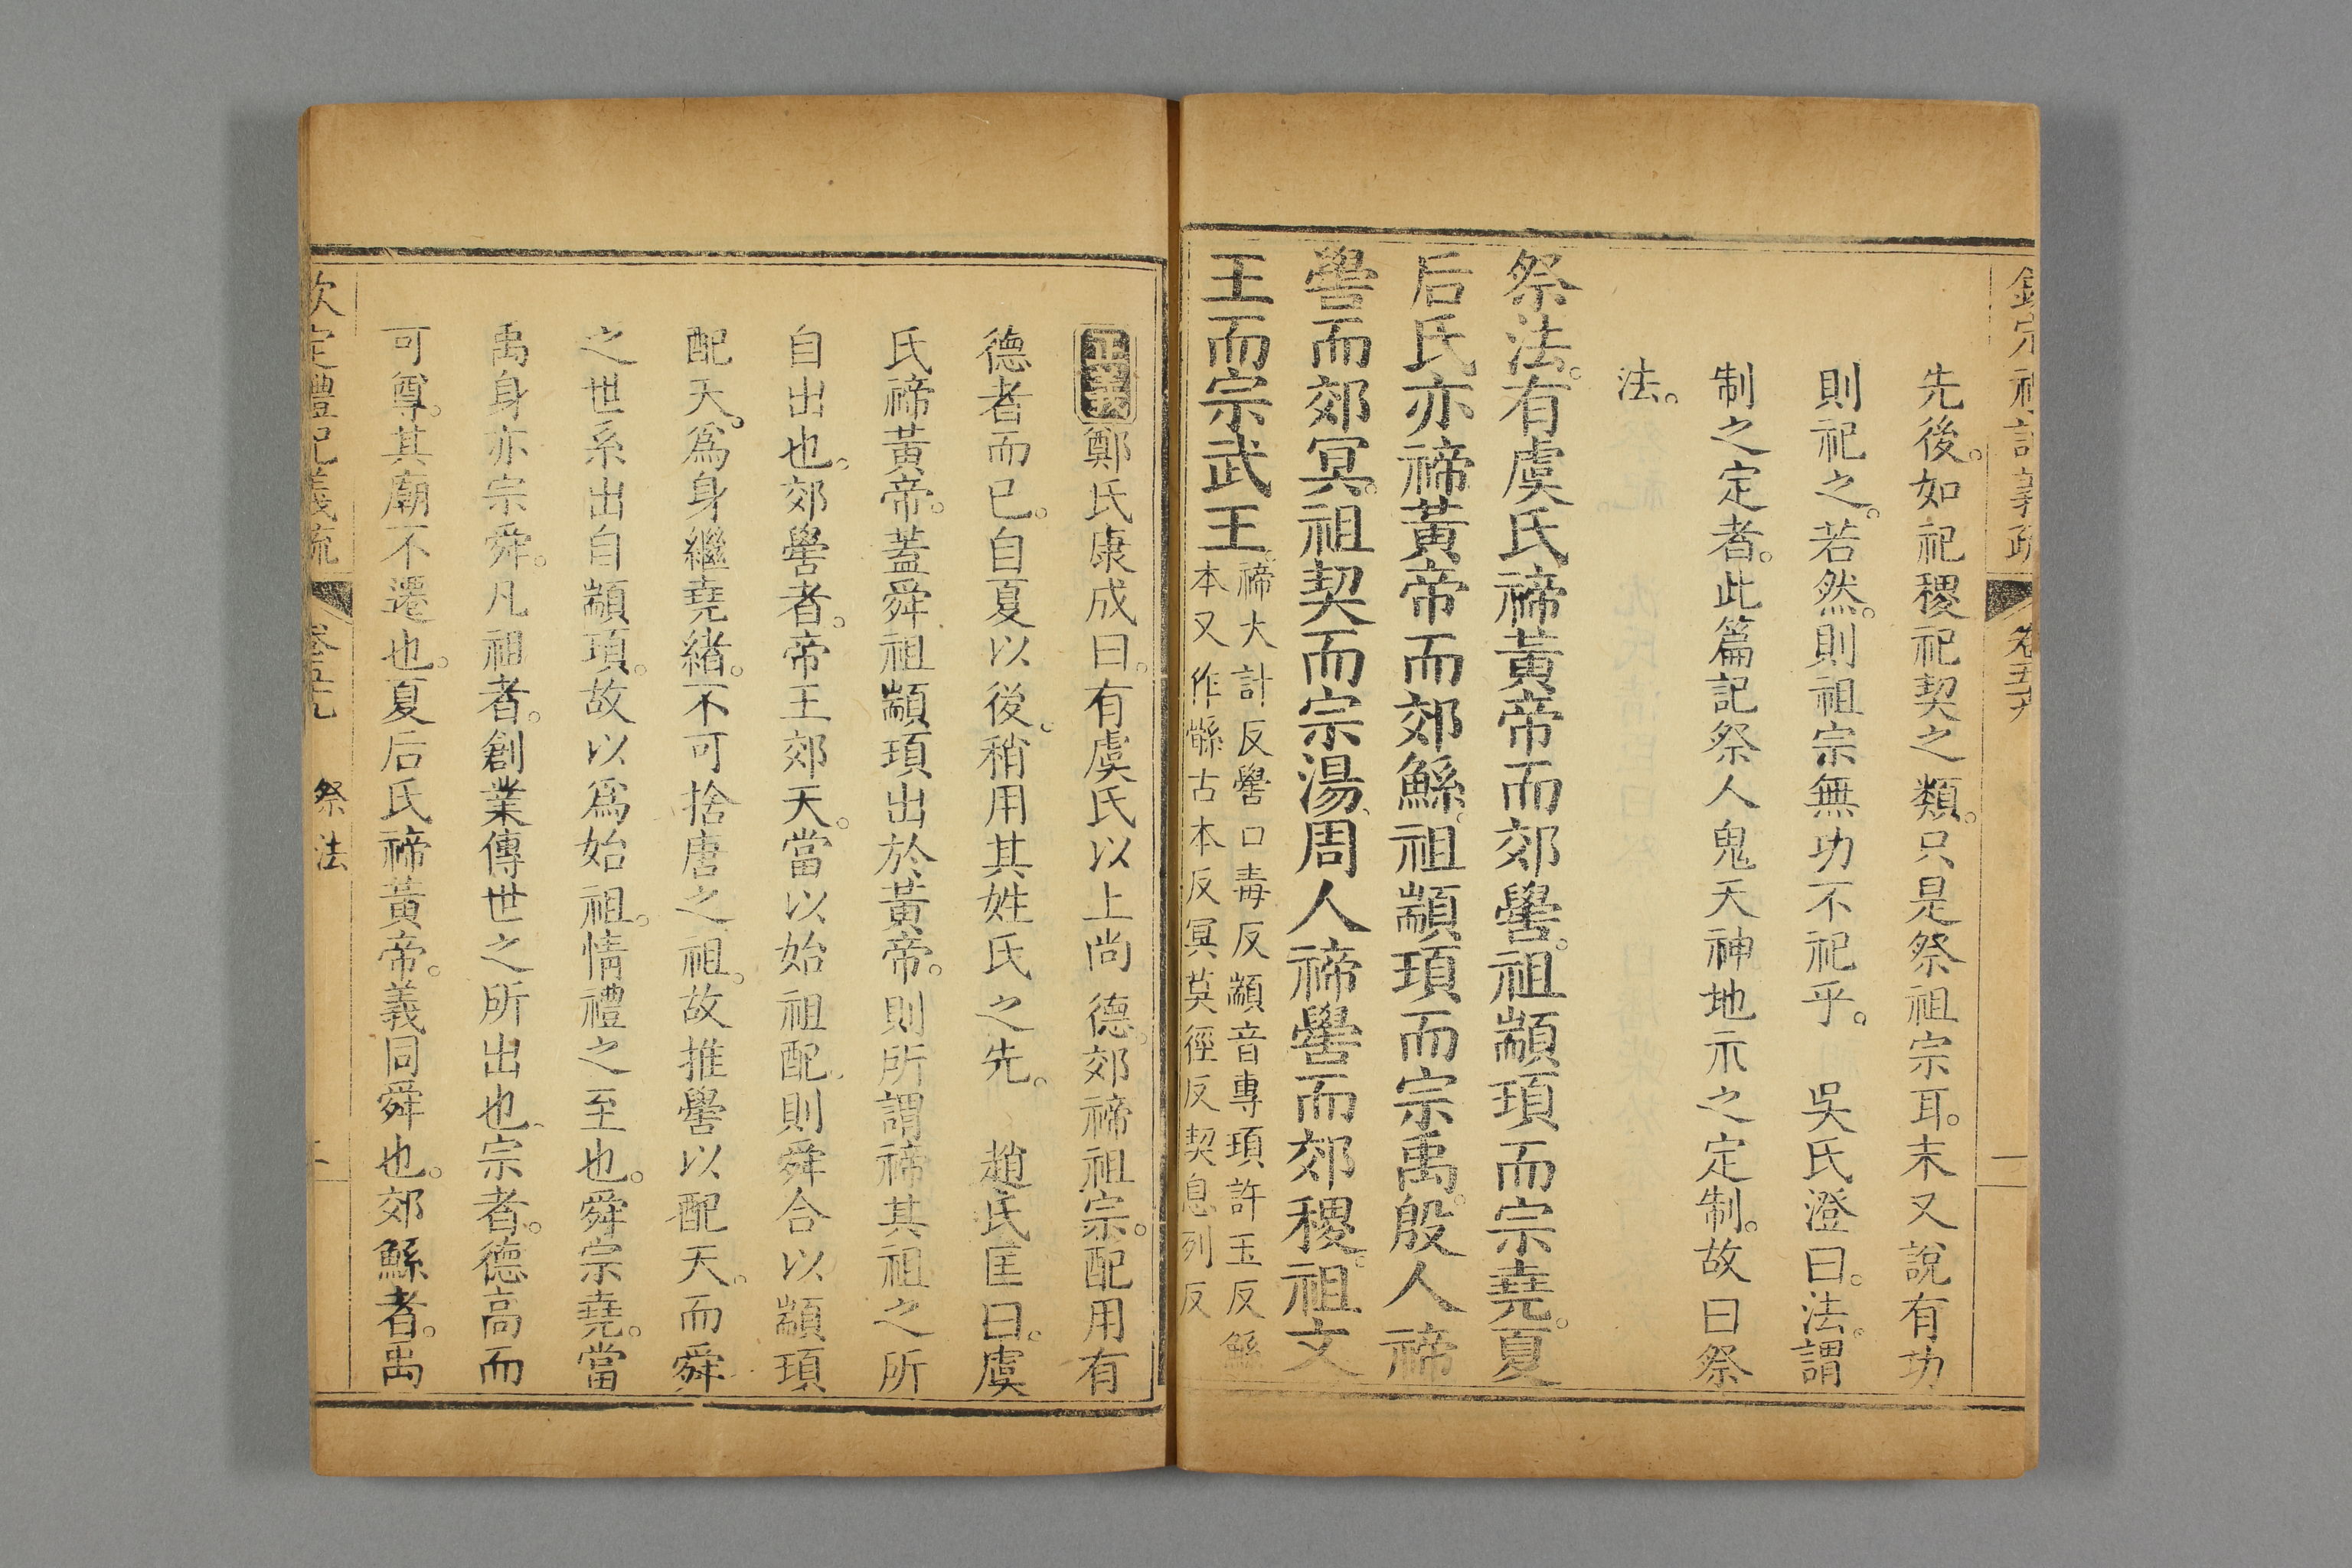 欽定禮記義疏 卷五十九 二
先後。如祀稷祀契之類。只是祭祖宗耳。末又說有功
則祀之。若然。則祖宗無功不祀乎。 吳氏澄曰。法。謂
制之定者。此篇記祭人鬼天神地示之定制。故曰祭
法。
祭法。有虞氏禘黃帝而郊嚳。祖顓頊而宗堯。夏
后氏亦禘黃帝而郊鯀。祖顓頊而宗禹。殷人禘
嚳而郊冥。祖契而宗湯。周人禘嚳而郊稷。祖文
王而宗武王。
禘大計反嚳口毒反顓音專頊許玉反鯀
本又作鯀古本反冥莫徑反契息列反
正義鄭氏康成曰。有虞氏以上尚德。郊禘祖宗。配用有
德者而已。自夏以後。稍用其姓氏之先。 趙氏匡曰。虞
氏禘黃帝。蓋舜祖顓頊出於黃帝。則所謂禘其祖之所
自出也。郊嚳者。帝王郊天。當以始祖配。則舜合以顓頊
配天。為身繼堯緒。不可捨唐之祖。故推嚳以配天。而舜
之世系出自顓頊。故以為始祖。情禮之至也。舜宗堯。當
禹身亦宗舜。凡祖者。創業傳世之所出也。宗者。德高而
可尊。其廟不遷也。夏后氏禘黃帝。義同舜也。郊鯀者。禹
欽定禮記義疏 卷五十九 祭法 二